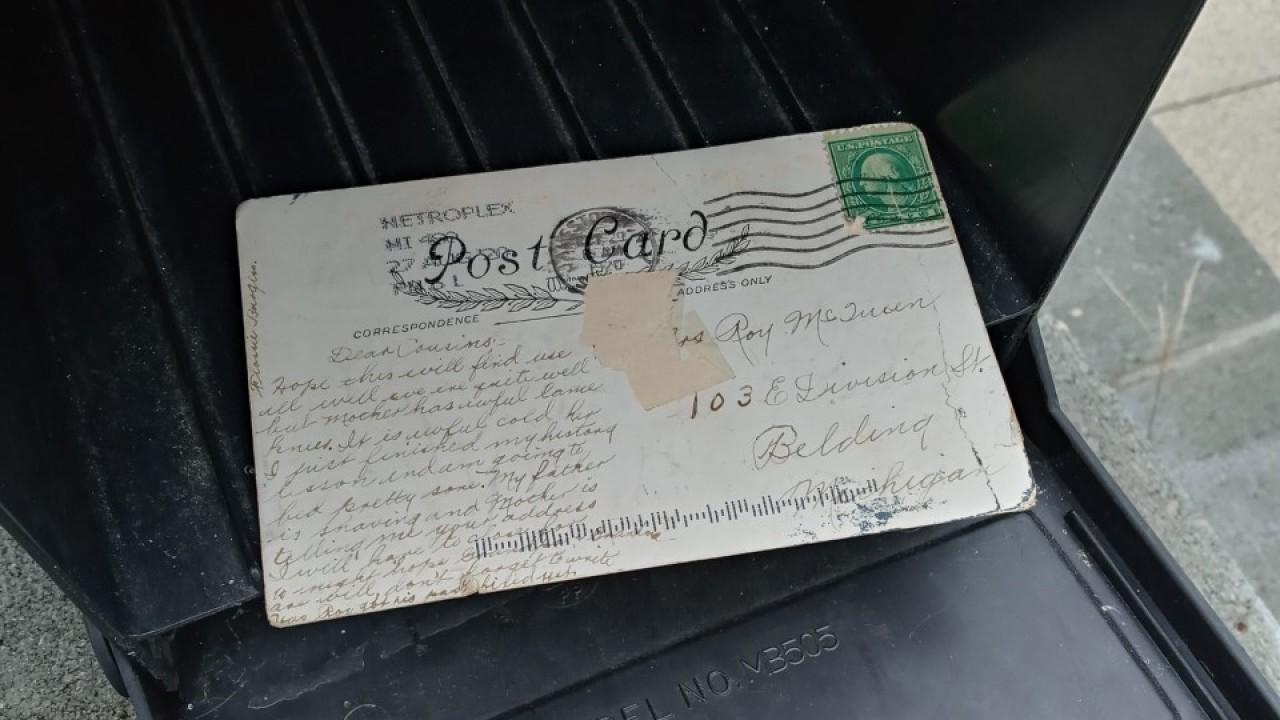 U.S. POSTAGE
METROPLEX
MI 480
Post Card
CORRESPONDENCE
ADDRESS ONLY
Dear Cousins:-
Hope this will find use
all well we are quite well
but Mother has awful lame
knees. It is awful cold her
I just finished my history
lesson and am going to
bed pretty soon. My father
is shaving and Mother is
telling me your address
I will have to close
to night hope
are well don't forget to write
Has Roy got his
rs Roy McQueen
103 E Division St.
Belding
Michigan
MODEL NO. MB505